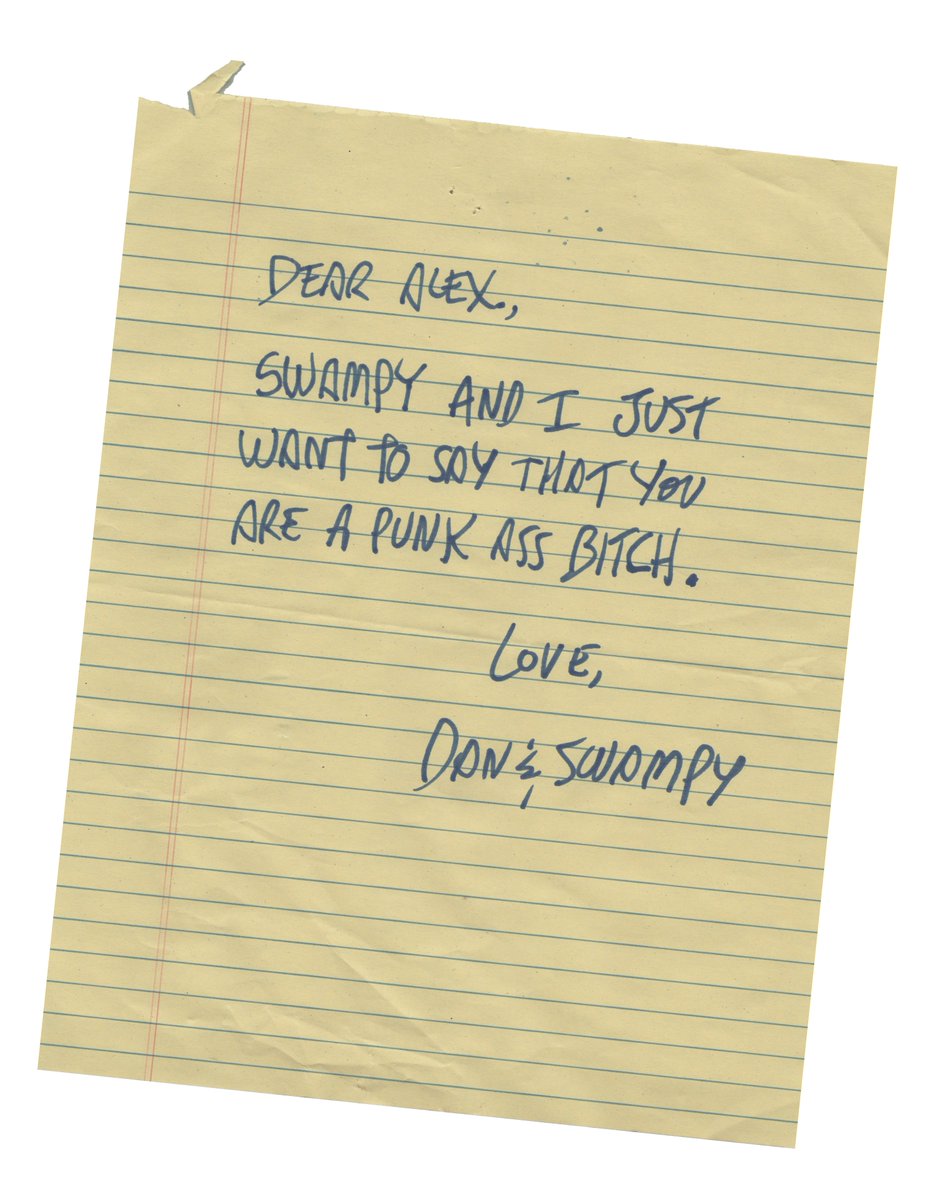 DEAR ALEX.,
SWAMPY AND I JUST
WANT TO SAY THAT YOU
ARE A PUNK ASS BITCH.
LOVE,
DAN & SWAMPY